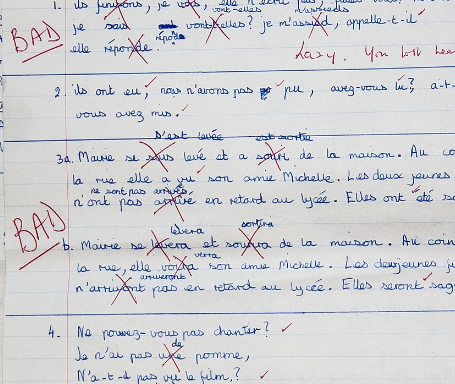 1. ils funirons, je vais, elle n'écrit pas,
vont-elles m'assieds
BAD
je sais vont-elles? je m'assied, appelle-t-il
répond
elle réponde. Lazy. You lost
2. ils ont eu, nous n'avons pas pu, avez-vous lu? a-t-
vous avez mis.
s'est levée est sortie
3a. Marie se levé et a de la maison. Au co
la rue elle a vu son amie Michelle. Les deux jeunes
ne sont pas arrivés
n'ont pas arrive en retard au lycée. Elles ont été s
BAD
lèvera sortira
b. Marie se levera et de la maison. Au coin
verra
la rue, elle voira son amie Michelle. Les deux jeunes
arriveront
pas en retard au lycée. Elles seront sag
4. Ne pouvez-vous pas chanter?
de
Je n'ai pas une pomme,
N'a-t-il pas vu le film?